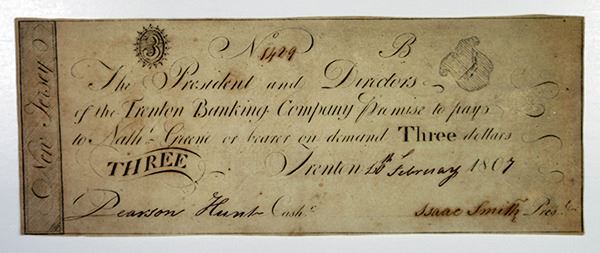 New Jersey
3
No 1429 B
The President and Directors
of the Trenton Banking Company Promise to pay
to Nathl. Greene or bearer on demand Three dollars
THREE Trenton February 1807
Pearson Hunt Cashr. Isaac Smith Prest.